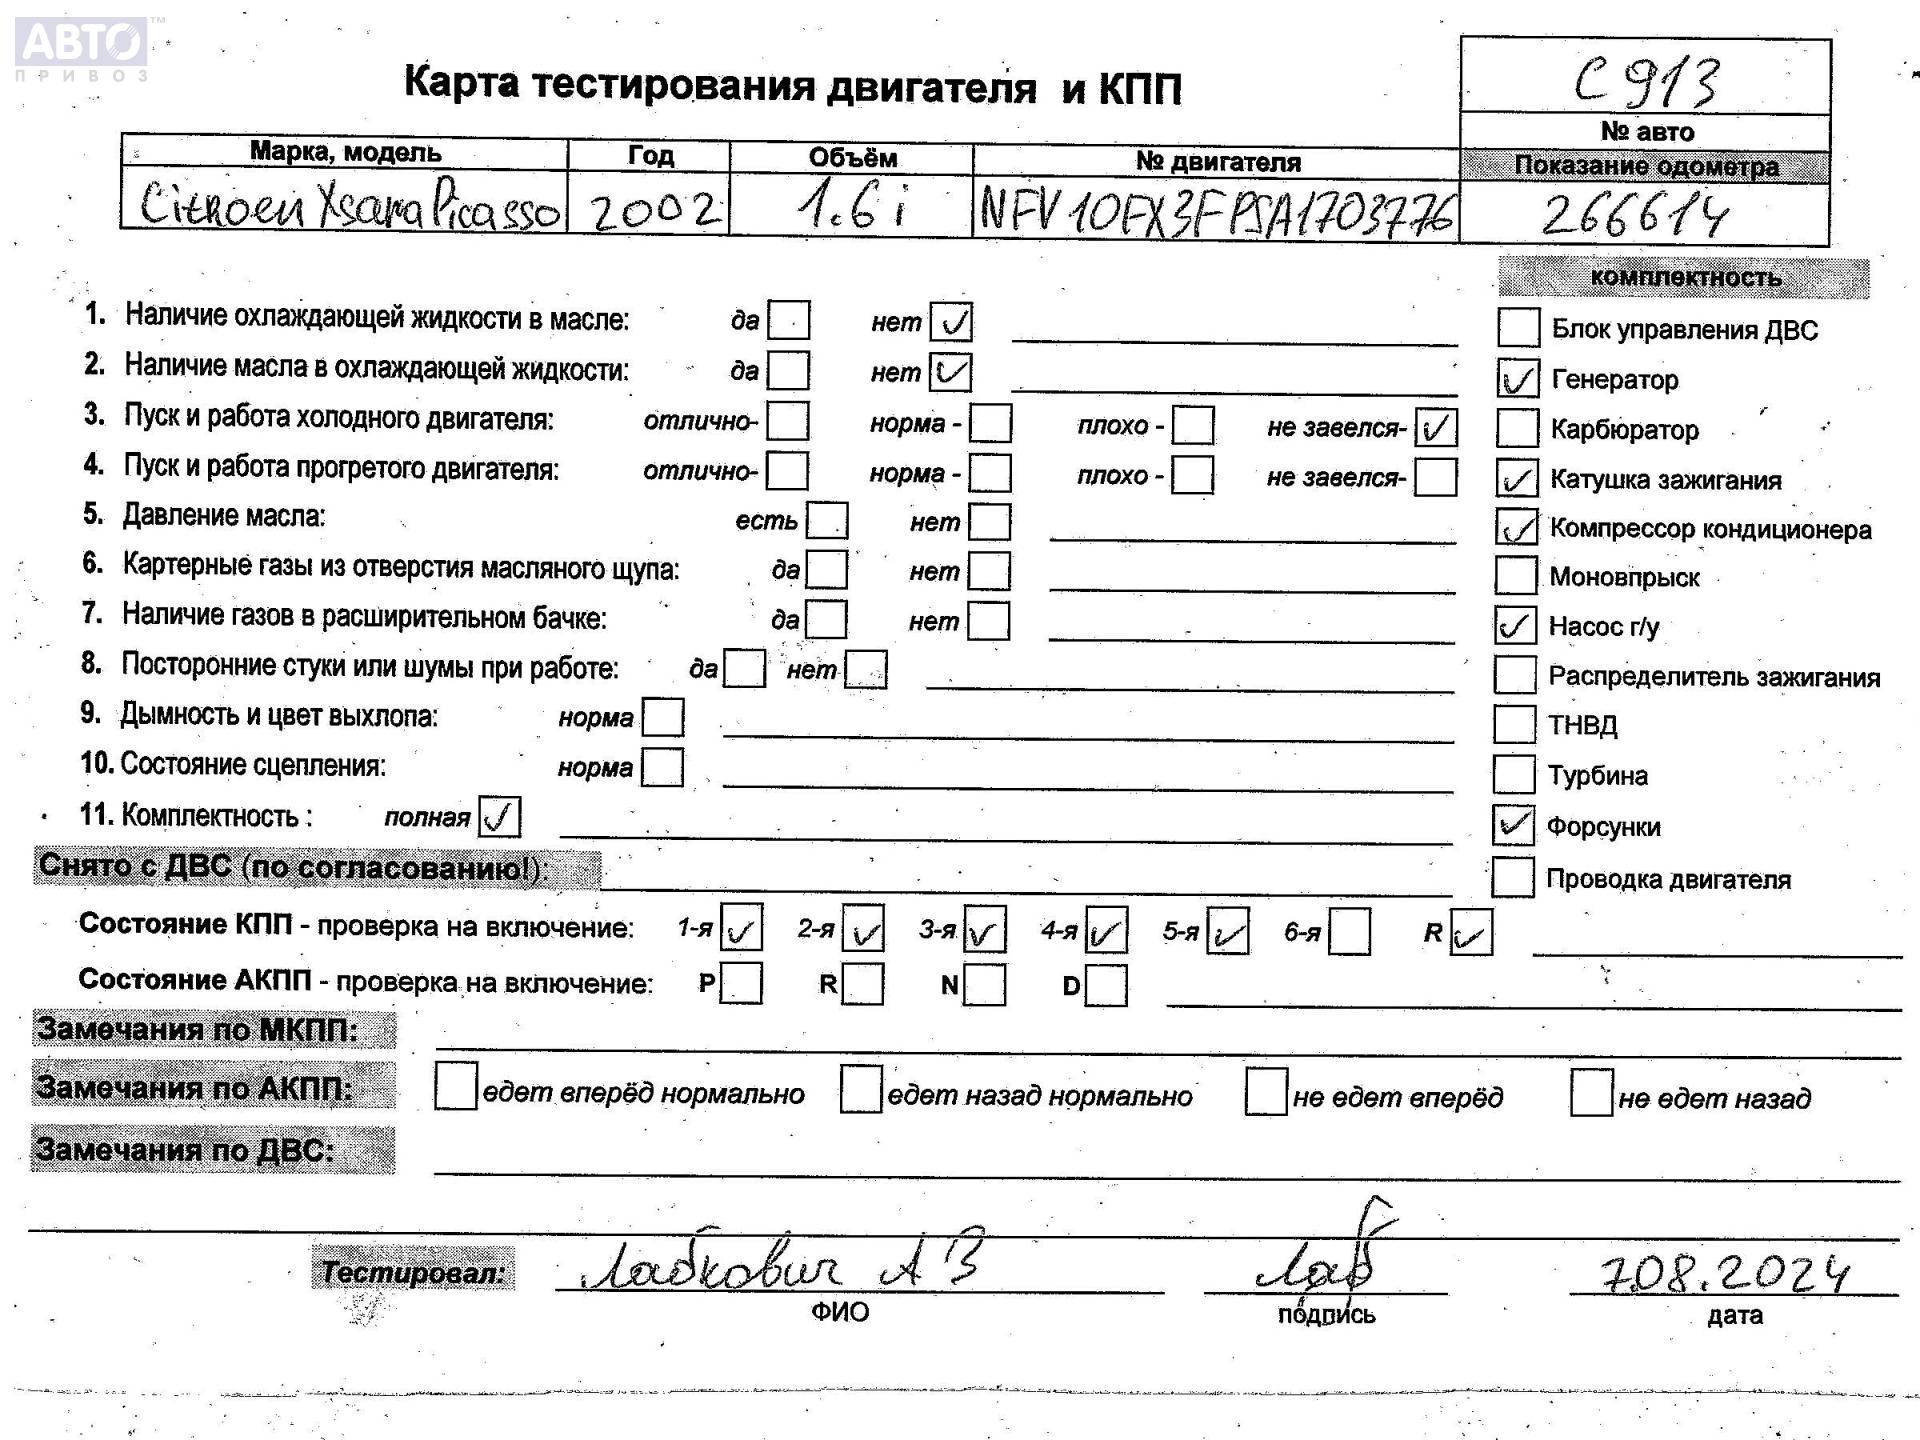 АВТО™
ПРИВОЗ
Карта тестирования двигателя и КПП
С 913
№ авто
Марка, модель Год Объём № двигателя Показание одометра
Citroen Xsara Picasso 2002 1.6 i NFV10FX3FPSA1703776 266614
комплектность
1. Наличие охлаждающей жидкости в масле: да нет ✓
Блок управления ДВС
2. Наличие масла в охлаждающей жидкости: да нет ✓
✓ Генератор
3. Пуск и работа холодного двигателя: отлично- норма - плохо - не завелся- ✓
Карбюратор
4. Пуск и работа прогретого двигателя: отлично- норма - плохо - не завелся-
✓ Катушка зажигания
5. Давление масла: есть нет
✓ Компрессор кондиционера
6. Картерные газы из отверстия масляного щупа: да нет
Моновпрыск
7. Наличие газов в расширительном бачке: да нет
✓ Насос г/у
8. Посторонние стуки или шумы при работе: да нет
Распределитель зажигания
9. Дымность и цвет выхлопа: норма
ТНВД
10. Состояние сцепления: норма
Турбина
11. Комплектность : полная ✓
✓ Форсунки
Снято с ДВС (по согласованию!):
Проводка двигателя
Состояние КПП - проверка на включение: 1-я ✓ 2-я ✓ 3-я ✓ 4-я ✓ 5-я ✓ 6-я R ✓
Состояние АКПП - проверка на включение: P R N D
Замечания по МКПП:
Замечания по АКПП: едет вперёд нормально едет назад нормально не едет вперёд не едет назад
Замечания по ДВС:
Тестировал: Лабкович А В Лаб 7.08.2024
ФИО подпись дата